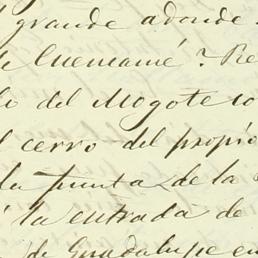 grande adonde
Cuencamé? Re
del Mogote
cerro del propio
la punta de la
la entrada de
de Guadalupe en